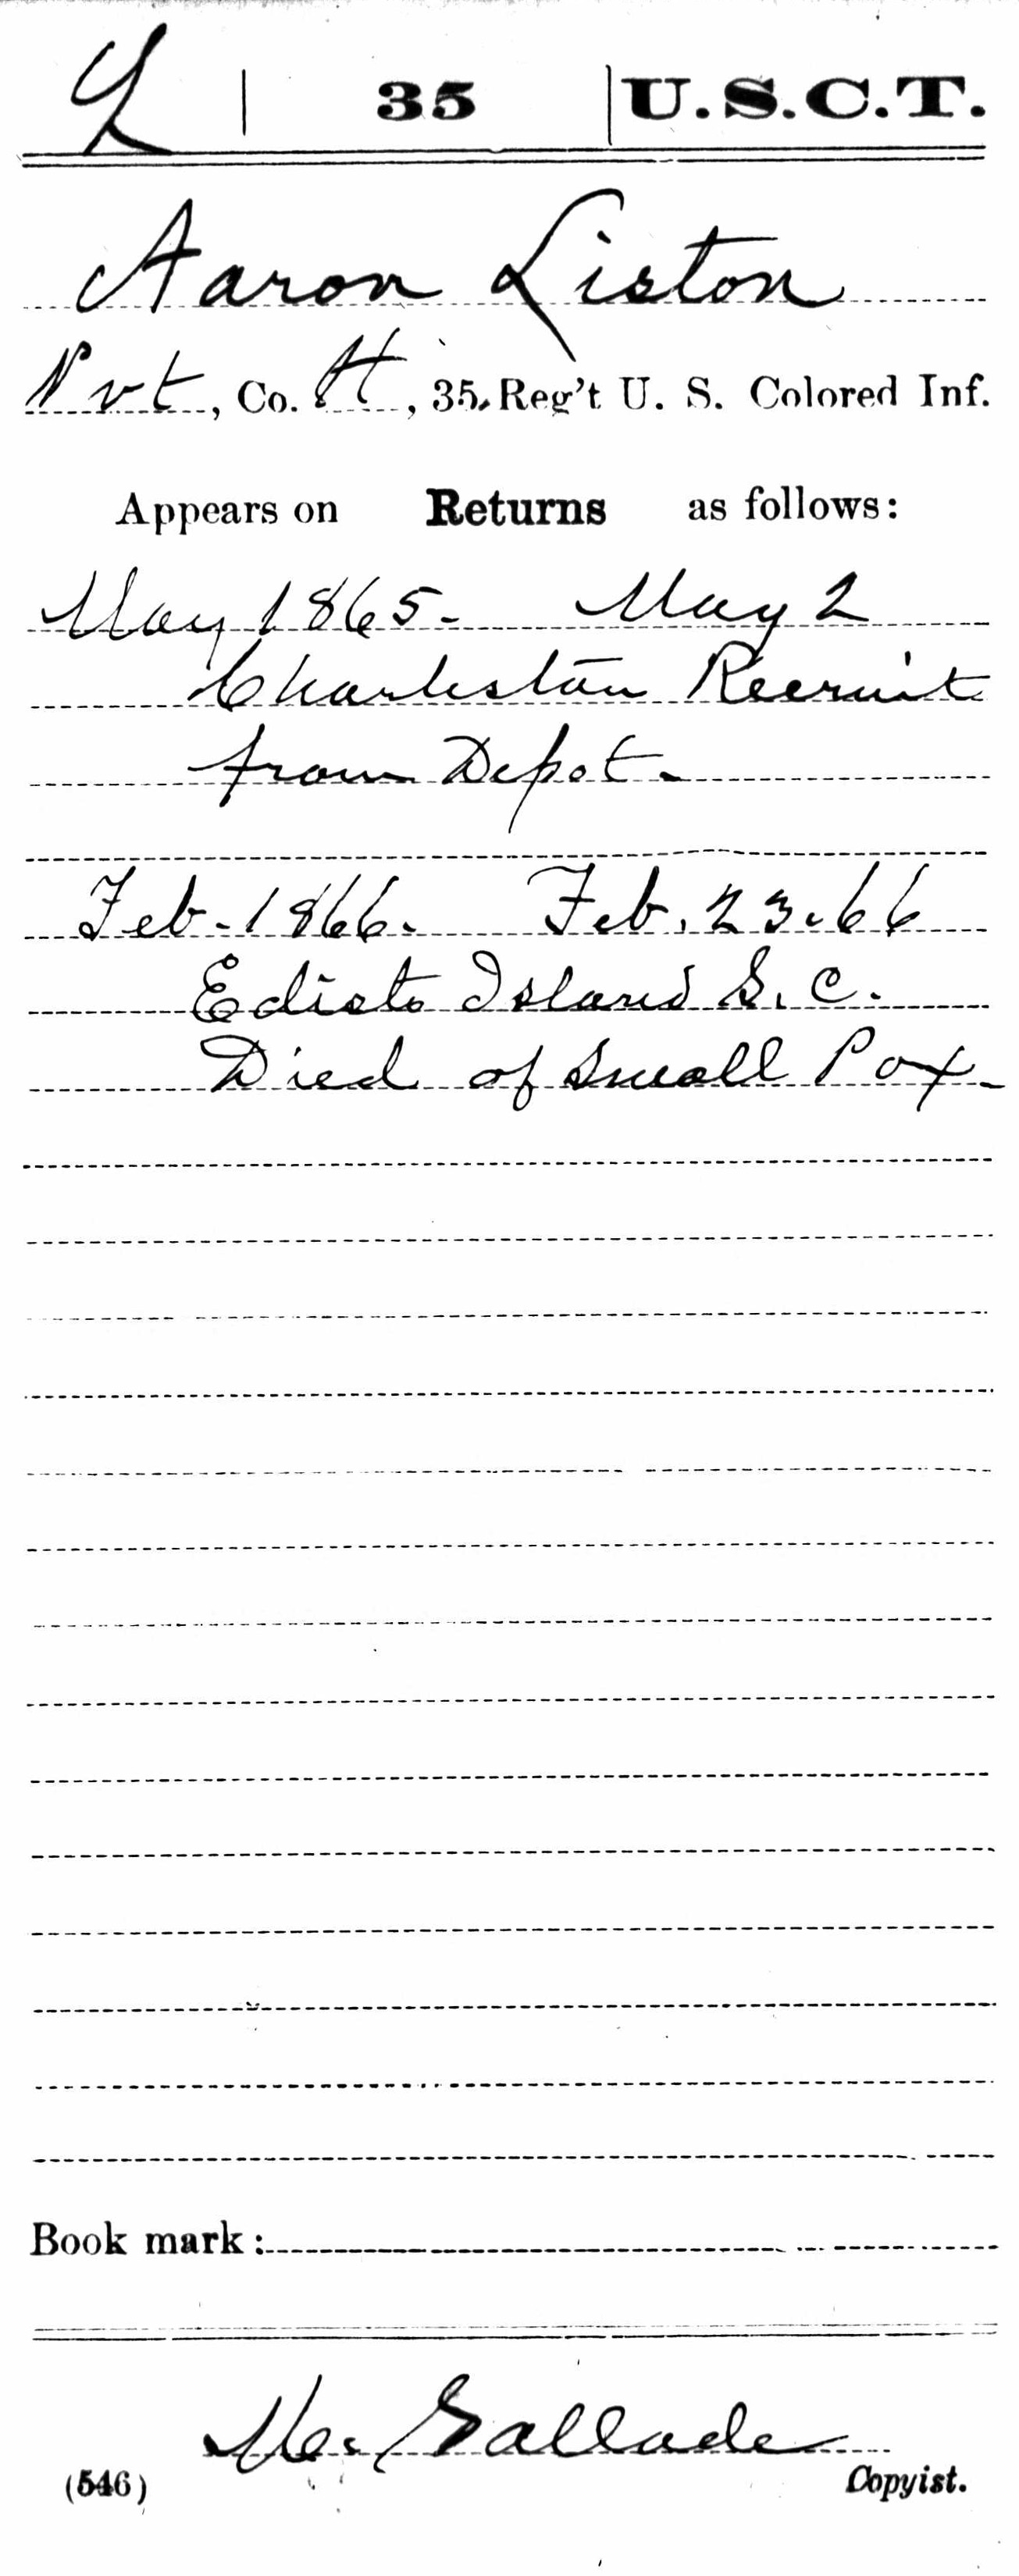 L | 35 | U.S.C.T.
Aaron Liston
Pvt, Co. H, 35 Reg't U. S. Colored Inf.
Appears on Returns as follows:
May 1865. May 2
Charleston Recruit
from Depot.
Feb. 1866. Feb. 23. 66
Edisto Island S. C.
Died of Small Pox
Book mark:
(546)
Copyist.